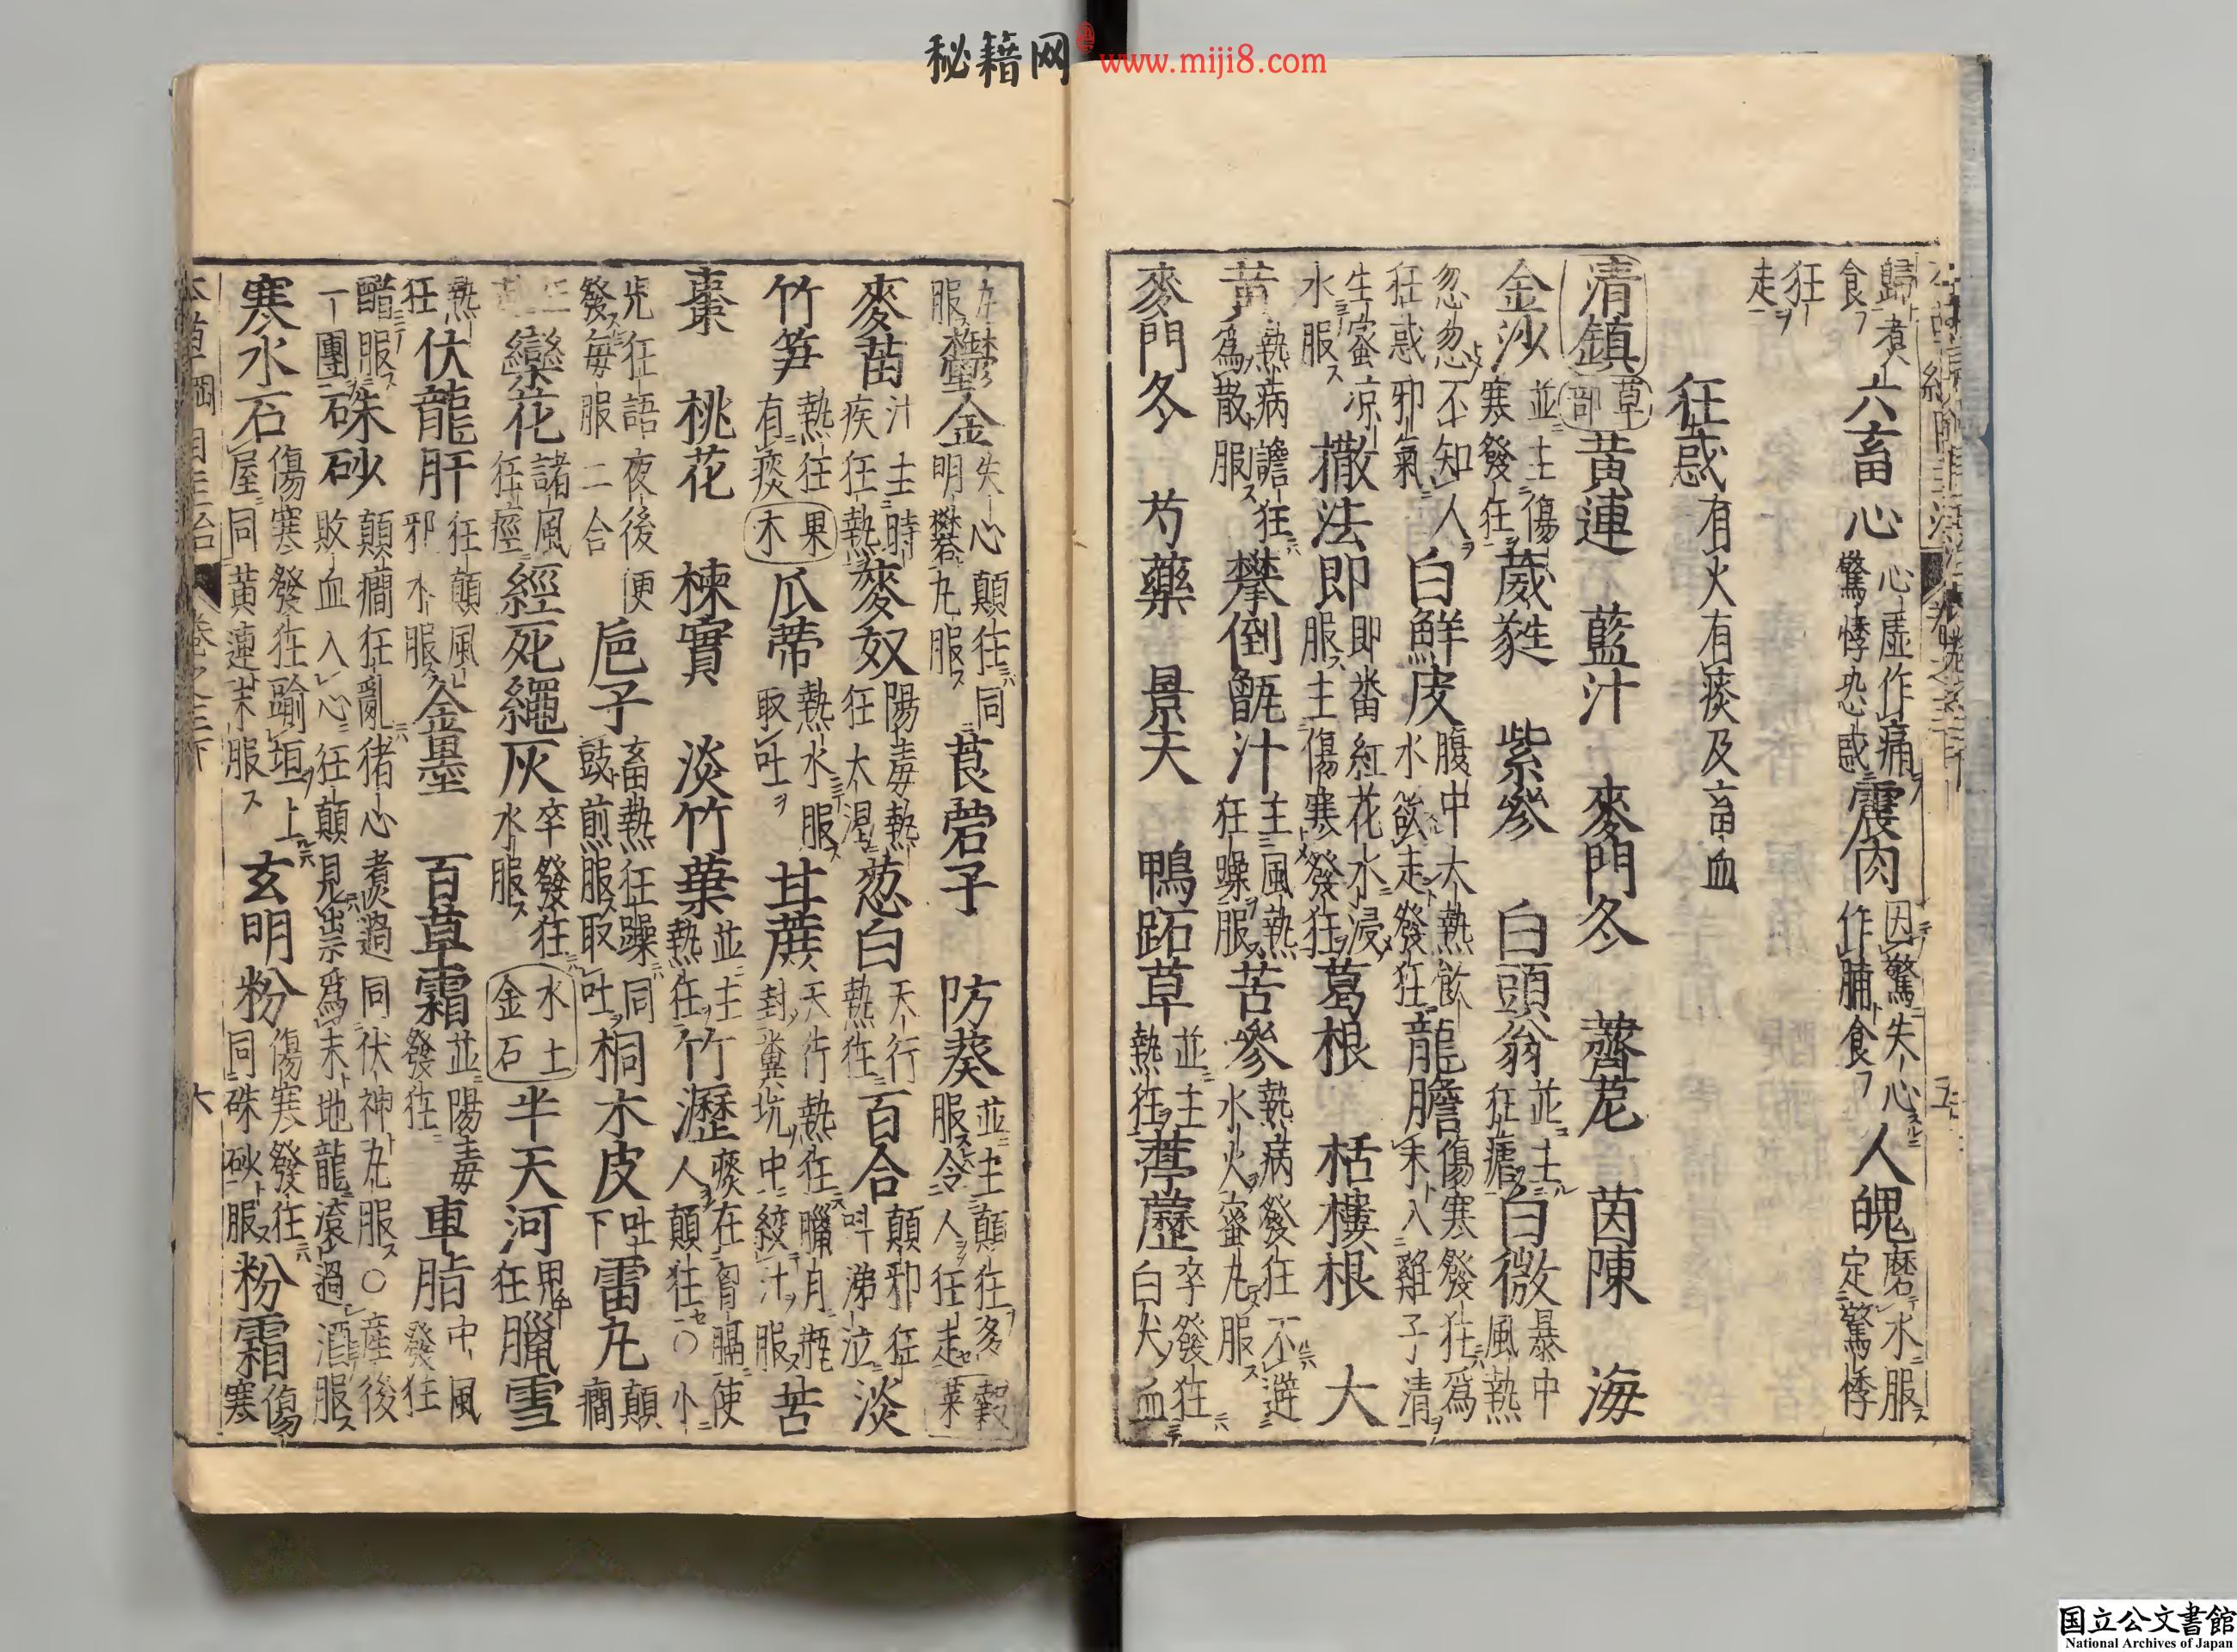 秘籍网 www.miji8.com
歸煮食六畜心心虛作痛驚悸恐惑震肉因驚失心作脯食人魄磨水服定驚悸
狂走
狂惑有火有痰及畜血
清鎮草部黃連 藍汁 麥門冬 薺苨 茵陳 海
金沙並主傷寒發狂葳蕤 紫參 白頭翁並主狂瘧白微暴中風熱
忽忽不知人狂惑邪氣白鮮皮腹中大熱飲水欲走發狂龍膽傷寒發狂爲末入雞子清
生蜜凉水服撒法即即番紅花水浸服主傷寒發狂葛根 栝樓根 大
黃熱病譫狂爲散服攀倒甑汁主風熱狂躁服苦參熱病發狂不避水火蜜丸服
麥門冬 芍藥 景天 鴨跖草並主熱狂葶藶卒發狂白犬血
丸服鬱金失心顛狂同明礬丸服莨菪子 防葵並主顛狂多服令人狂走穀菜
麥苗汁主時疾狂熱麥奴陽毒熱狂大渴葱白天行熱狂百合顛邪狂叫涕泣淡
竹笋熱狂有痰果木瓜蒂熱水服取吐甘蔗天行熱狂臘月瓶封糞坑中絞汁服苦
棗 桃花 楝實 淡竹葉並主熱狂竹瀝痰在胷膈使人顛狂○小
兒狂語夜後便發每服二合巵子畜熱狂躁同豉煎服取吐桐木皮吐下雷丸顛癎
欒花諸風狂痙經死繩灰卒發狂水服水土金石半天河鬼狂臘雪
熱狂伏龍肝狂顛風邪水服金墨 百草霜並陽毒發狂車脂中風發狂
醋服一團硃砂顛癎狂亂猪心煮過同伏神丸服○産後敗血入心狂顛見祟爲末地龍滚過酒服
寒水石傷寒發狂踰垣上屋同黃連末服玄明粉傷寒發狂同硃砂服粉霜傷寒
六
国立公文書館
National Archives of Japan